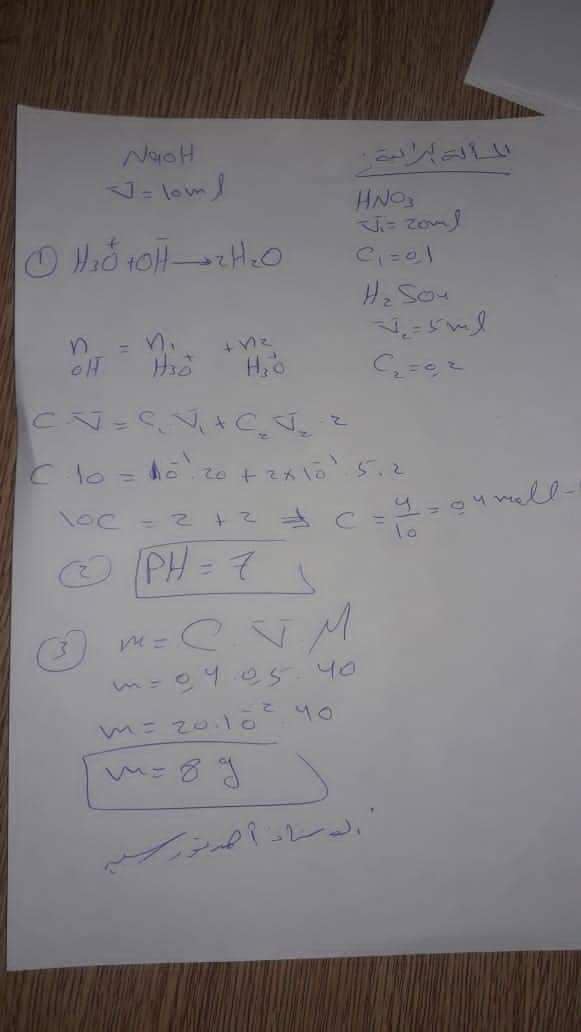 المسألة الرابعة:
NaOH
V = 10ml
HNO₃
V₁ = 20ml
C₁ = 0,1
H₂SO₄
V₂ = 5ml
C₂ = 0,2
① H₃O⁺ + OH⁻ → 2H₂O
n OH⁻ = n₁ H₃O⁺ + n₂ H₃O⁺
C V = C₁ V₁ + C₂ V₂ . 2
C 10 = 10⁻¹ . 20 + 2×10⁻¹ . 5 . 2
10C = 2 + 2 ⇒ C = 4/10 = 0,4 mol l⁻
② PH = 7
③ m = C V M
m = 0,4 . 0,5 . 40
m = 20.10⁻² . 40
m = 8 g